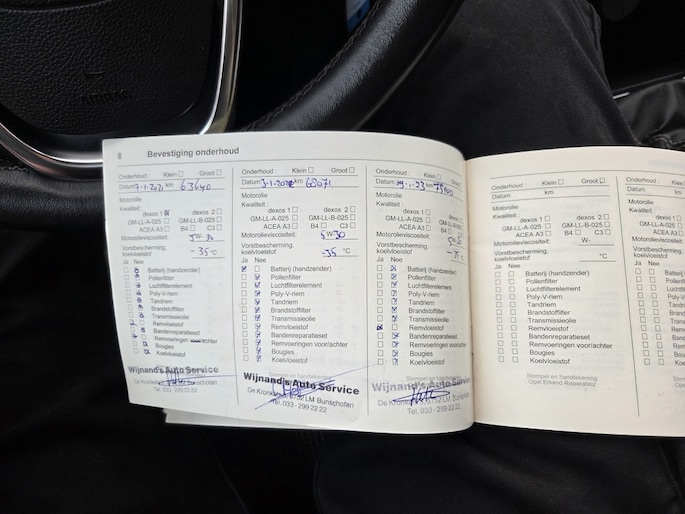 8 Bevestiging onderhoud
Onderhoud : Klein ☐ Groot ☐
Datum 7-1-2021 km 63640
Motorolie
Kwaliteit : dexos 1 dexos 2 ☐
GM-LL-A-025 ☐ GM-LL-B-025 ☐
ACEA A3 ☐ B4 ☐ C3 ☐
Motorolieviscositeit: 5W-30
Vorstbescherming,
koelvloeistof -35 °C
Ja Nee
Batterij (handzender)
Pollenfilter
Luchtfilterelement
Poly-V-riem
Tandriem
Brandstoffilter
Transmissieolie
Remvloeistof
Bandenreparatieset
Remvoeringen voor/achter
Bougies
Koelvloeistof
Wijnand's Auto Service
Bunschoten
Tel. 033 - 299 22 22
Onderhoud : Klein ☐ Groot ☐
Datum 3-1-2022 km 68071
Motorolie
Kwaliteit : dexos 1 ☐ dexos 2 ☐
GM-LL-A-025 ☐ GM-LL-B-025 ☐
ACEA A3 ☐ B4 ☐ C3 ☐
Motorolieviscositeit: 5W30
Vorstbescherming,
koelvloeistof -35 °C
Ja Nee
Batterij (handzender)
Pollenfilter
Luchtfilterelement
Poly-V-riem
Tandriem
Brandstoffilter
Transmissieolie
Remvloeistof
Bandenreparatieset
Remvoeringen voor/achter
Bougies
Koelvloeistof
Wijnand's Auto Service
6752 LM Bunschoten
Tel. 033 - 299 22 22
Onderhoud : Klein ☐ Groot ☐
Datum 19-1-23 km
Motorolie
Kwaliteit : dexos 1 ☐ dexos 2 ☐
GM-LL-A-025 ☐ GM-LL-B-025 ☐
ACEA A3 ☐ B4 ☐ C3 ☐
Motorolieviscositeit: 5W-30
Vorstbescherming,
koelvloeistof °C
Ja Nee
Batterij (handzender)
Pollenfilter
Luchtfilterelement
Poly-V-riem
Tandriem
Brandstoffilter
Transmissieolie
Remvloeistof
Bandenreparatieset
Remvoeringen voor/achter
Bougies
Koelvloeistof
Stempel en handtekening
Wijnand's Auto Service
6752 LM Bunschoten
Tel. 033 - 299 22 22
Onderhoud : Klein ☐ Groot ☐
Datum km
Motorolie
Kwaliteit : dexos 1 ☐ dexos 2 ☐
GM-LL-A-025 ☐ GM-LL-B-025 ☐
ACEA A3 ☐ B4 ☐ C3 ☐
Motorolieviscositeit: W-
Vorstbescherming,
koelvloeistof °C
Ja Nee
☐ ☐ Batterij (handzender)
☐ ☐ Pollenfilter
☐ ☐ Luchtfilterelement
☐ ☐ Poly-V-riem
☐ ☐ Tandriem
☐ ☐ Brandstoffilter
☐ ☐ Transmissieolie
☐ ☐ Remvloeistof
☐ ☐ Bandenreparatieset
☐ ☐ Remvoeringen voor/achter
☐ ☐ Bougies
☐ ☐ Koelvloeistof
Stempel en handtekening
Opel Erkend Reparateur
Onderhoud :
Datum
Motorolie
Kwaliteit :
GM-LL-A-025
ACEA A3
Motorolieviscositeit:
Vorstbescherming,
koelvloeistof
Ja Nee